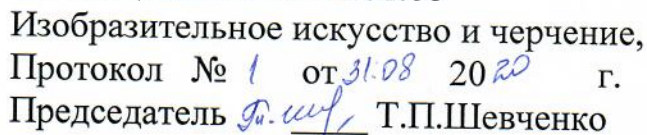 Изобразительное искусство и черчение,
Протокол № 1 от 31.08 2020 г.
Председатель Т.П.Шевченко